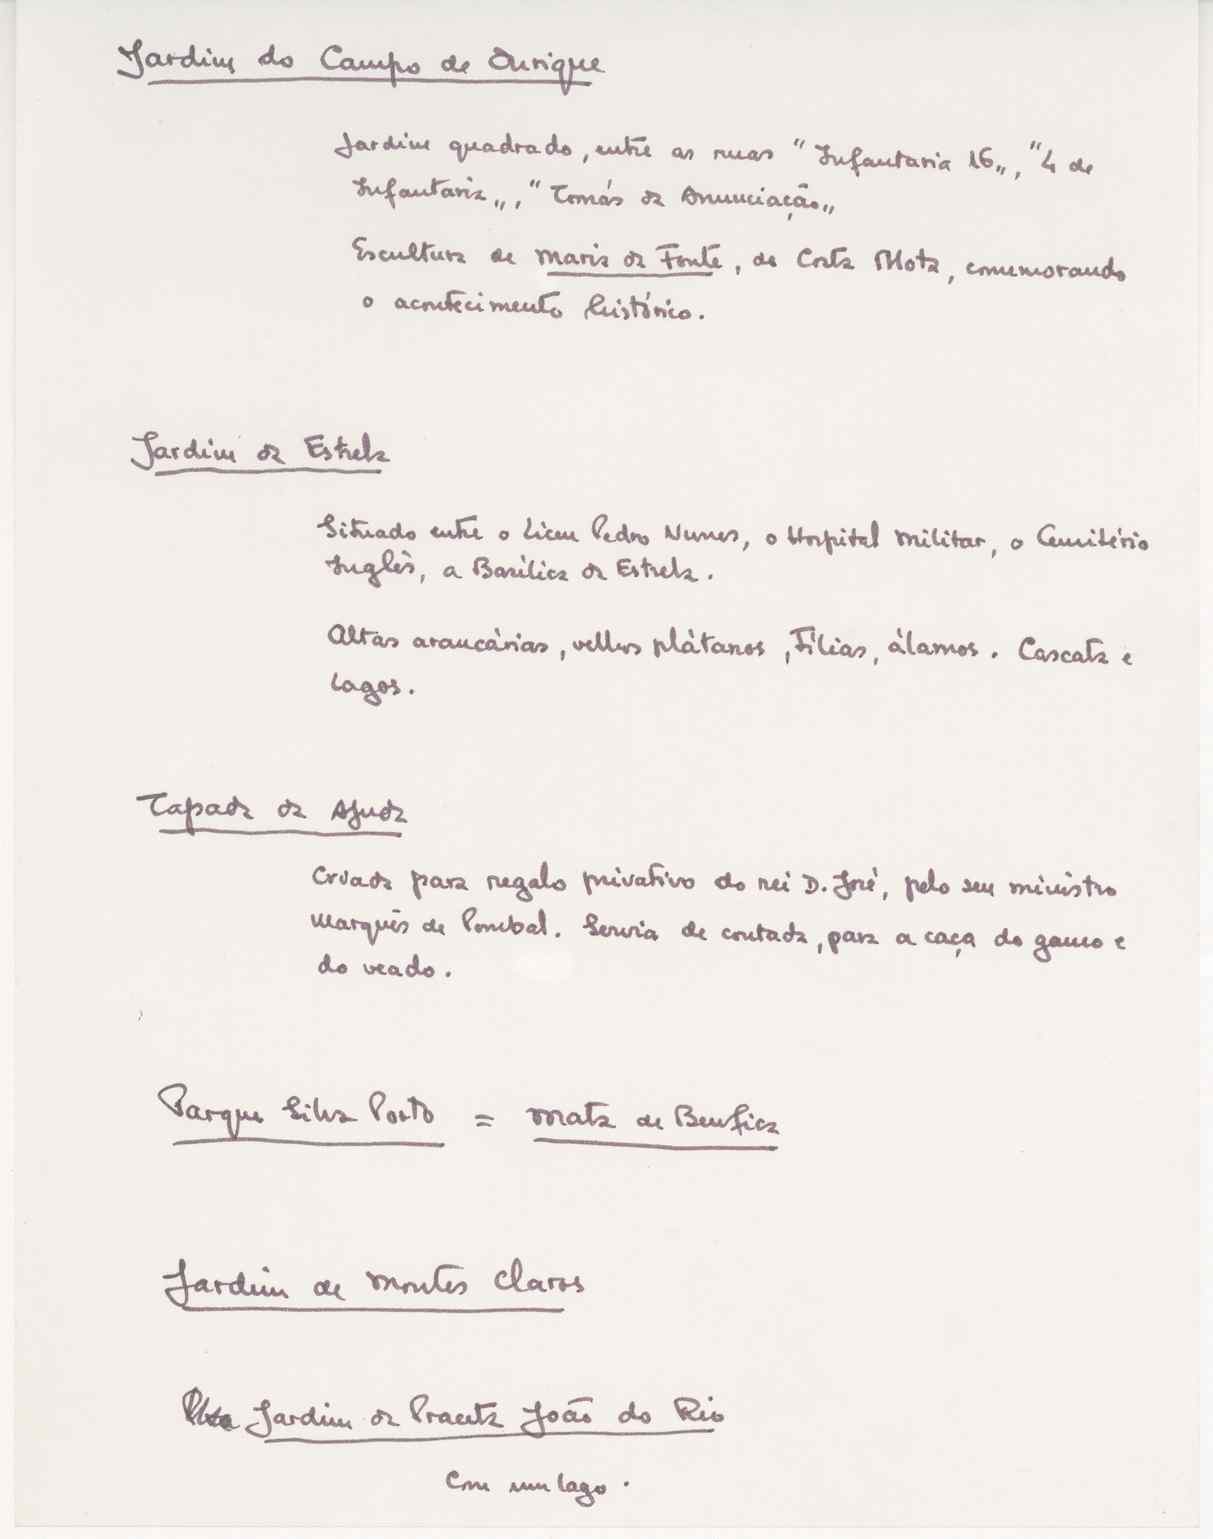 Jardim do Campo de Ourique
Jardim quadrado, entre as ruas "Infantaria 16", "4 de
Infantaria", "Tomás da Anunciação"
Escultura de Maria da Fonte, de Costa Mota, comemorando
o acontecimento histórico.
Jardim da Estrela
Situado entre o Liceu Pedro Nunes, o Hospital Militar, o Cemitério
Inglês, a Basílica da Estrela.
Altas araucárias, velhos plátanos, tílias, álamos. Cascata e
lagos.
Tapada da Ajuda
Criada para regalo privativo do rei D. José, pelo seu ministro
Marquês de Pombal. Servia de coutada, para a caça do gamo e
do veado.
Parque Silva Porto = Mata de Benfica
Jardim de Montes Claros
Jardim da Praceta João do Rio
Com um lago.